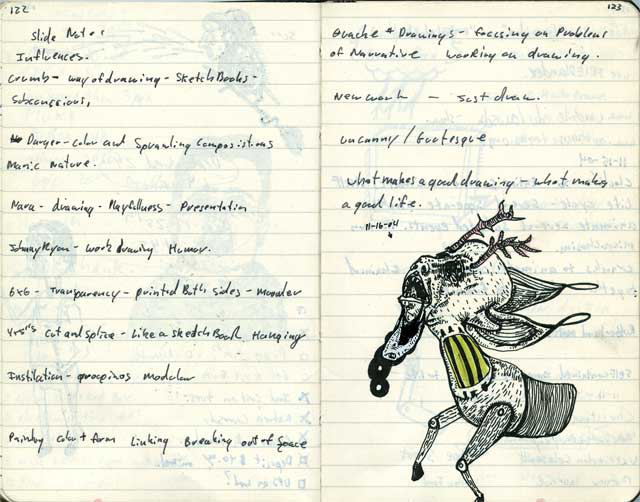 122
Slide Notes
Influences.
Crumb - way of drawing - SketchBooks -
Subconscious,
Darger - color and Sprawling Compositions
Manic Nature.
Mara - drawing - Playfullness - Presentation
Johnny Ryan - work drawing Humor.
6x6 - Transparency - printed Both sides - Modular
Cut and Splice - Like a sketch Book Hanging
Instillation - modular
Painting color + form Linking Breaking out of Space
123
Guache + Drawings - focusing on Problems
of Narrative working on drawing.
New work - Just draw.
uncanny / Grotesque
what makes a good drawing - what makes
a good life.
11-16-04